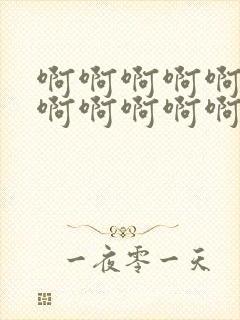 啊啊啊啊啊
啊啊啊啊啊
一夜零一天